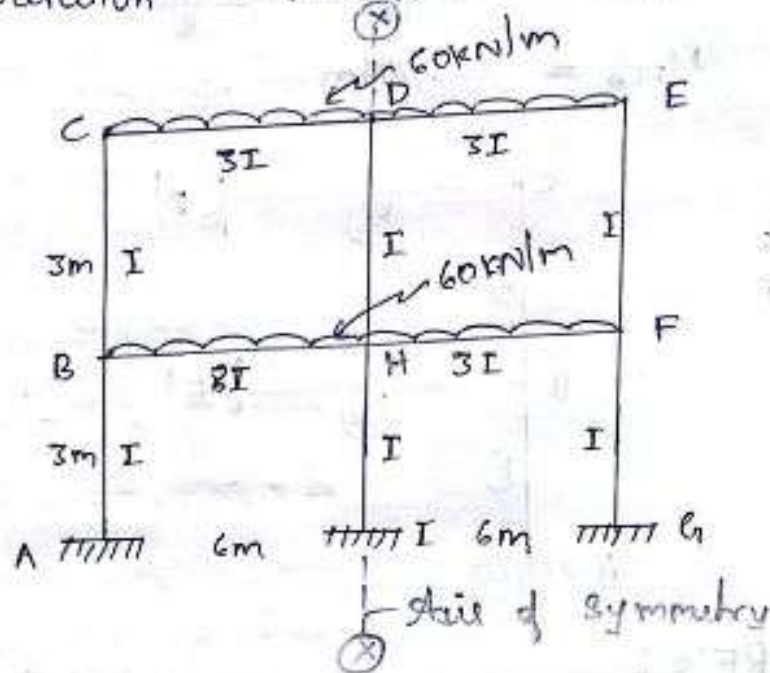 X
60kN/m
C
D
E
3I
3I
3m
I
I
I
60kN/m
B
8I
H
3I
F
3m
I
I
I
A
6m
I
6m
G
Axis of Symmetry
X